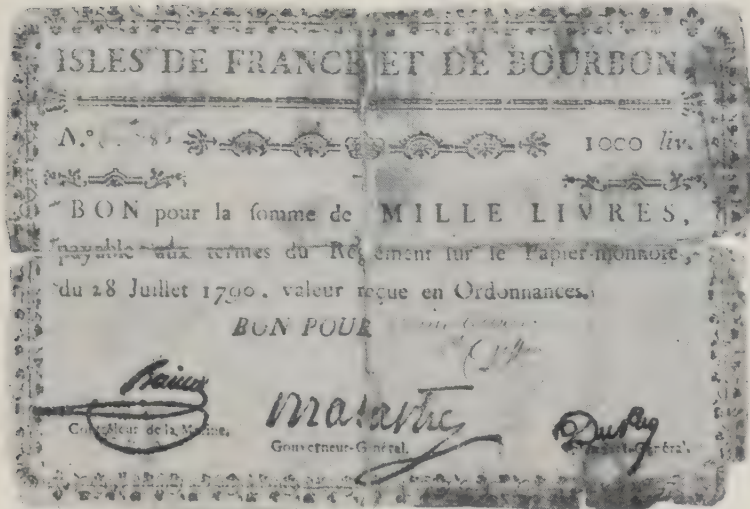 ISLES DE FRANCE ET DE BOURBON
N.º 1000 liv.
BON pour la ſomme de MILLE LIVRES,
payable aux termes du Réglement ſur le Papier-monnoie,
du 28 Juillet 1790, valeur reçue en Ordonnances.
BON POUR
Contrôleur de la Marine.
Gouverneur-Général.